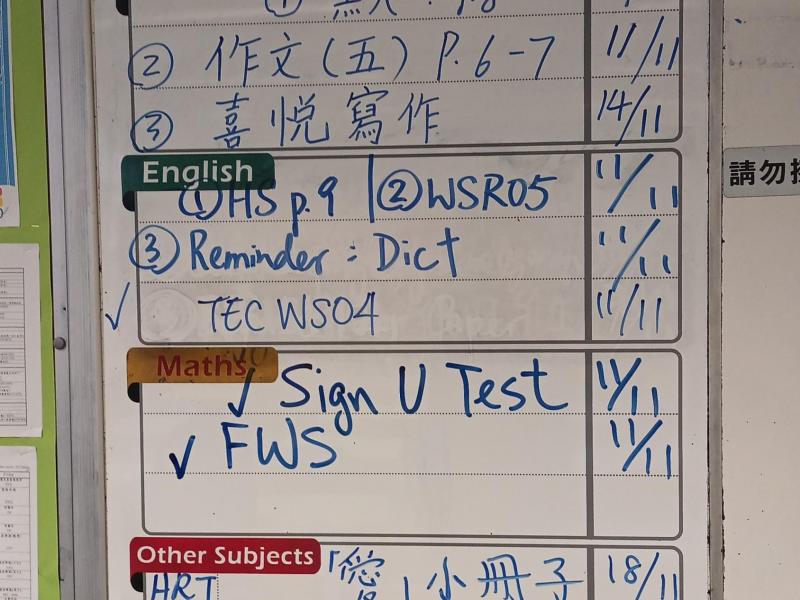 ② 作文(五) P.6-7 11/11
③ 喜悅寫作 14/11
English
① HS p.9 | ② WSR05 11/11
③ Reminder : Dict 11/11
✓ TEC WS04 11/11
Maths
✓ Sign U Test 11/11
✓ FWS 11/11
Other Subjects
HRT 小冊子 18/11
請勿